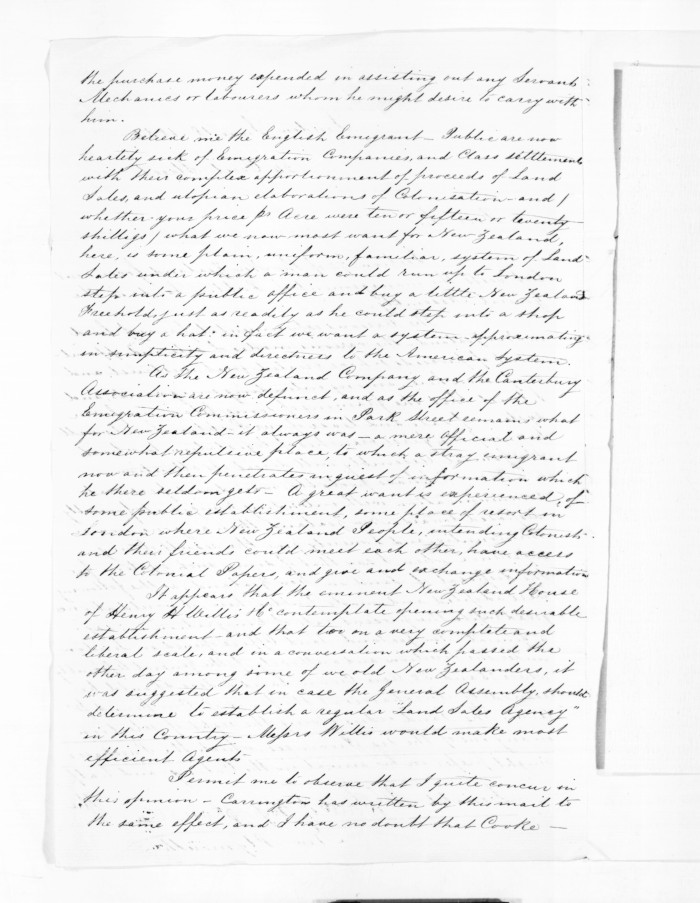 the purchase money expended in assisting out any Servants
Mechanics or labourers whom he might desire to carry with
him.
Believe me the English Emigrant - Public are now
heartely sick of Emigration Companies, and Class settlements
with their complex apportionment of proceeds of Land
Sales, and utopian elaborations of Colonisation - and /
whether your price p Acre were ten or fifteen or twenty
shilligs / what we now most want for New Zealand,
here, is some plain, uniform, familiar, system of Land
Sales under which a man could run up to London
step into a public office and buy a little New Zealand
Freehold, just as readily as he could step into a shop
and buy a hat: in fact we want a system approximating
in simplicity and directness to the American System.
As the New Zealand Company and the Canterbury
Association are now defunct, and as the office of the
Emigration Commissioners in Park Street remains what
for New Zealand - it always was - a mere Official and
somewhat repulsive place, to which a stray emigrant
now and then penetrates in quest of information which
he there seldom gets - A great want is experienced, of
some public establishment, some place of resort in
London where New Zealand People, intending Colonists
and their friends could meet each other, have access
to the Colonial Papers, and give and exchange information
It appears that the eminent New Zealand House
of Henry H Willis & Co contemplate opening such desirable
establishment - and that too on a very complete and
liberal scale, and in a conversation which passed the
other day among some of we old New Zealanders, it
was suggested that in case the General Assembly should
determine to establish a regular "Land Sales Agency"
in this Country - Messrs Willis would make most
efficient Agents
Permit me to observe that I quite concur in
this opinion - Carrington has written by this mail to
the same effect, and I have no doubt that Cooke -